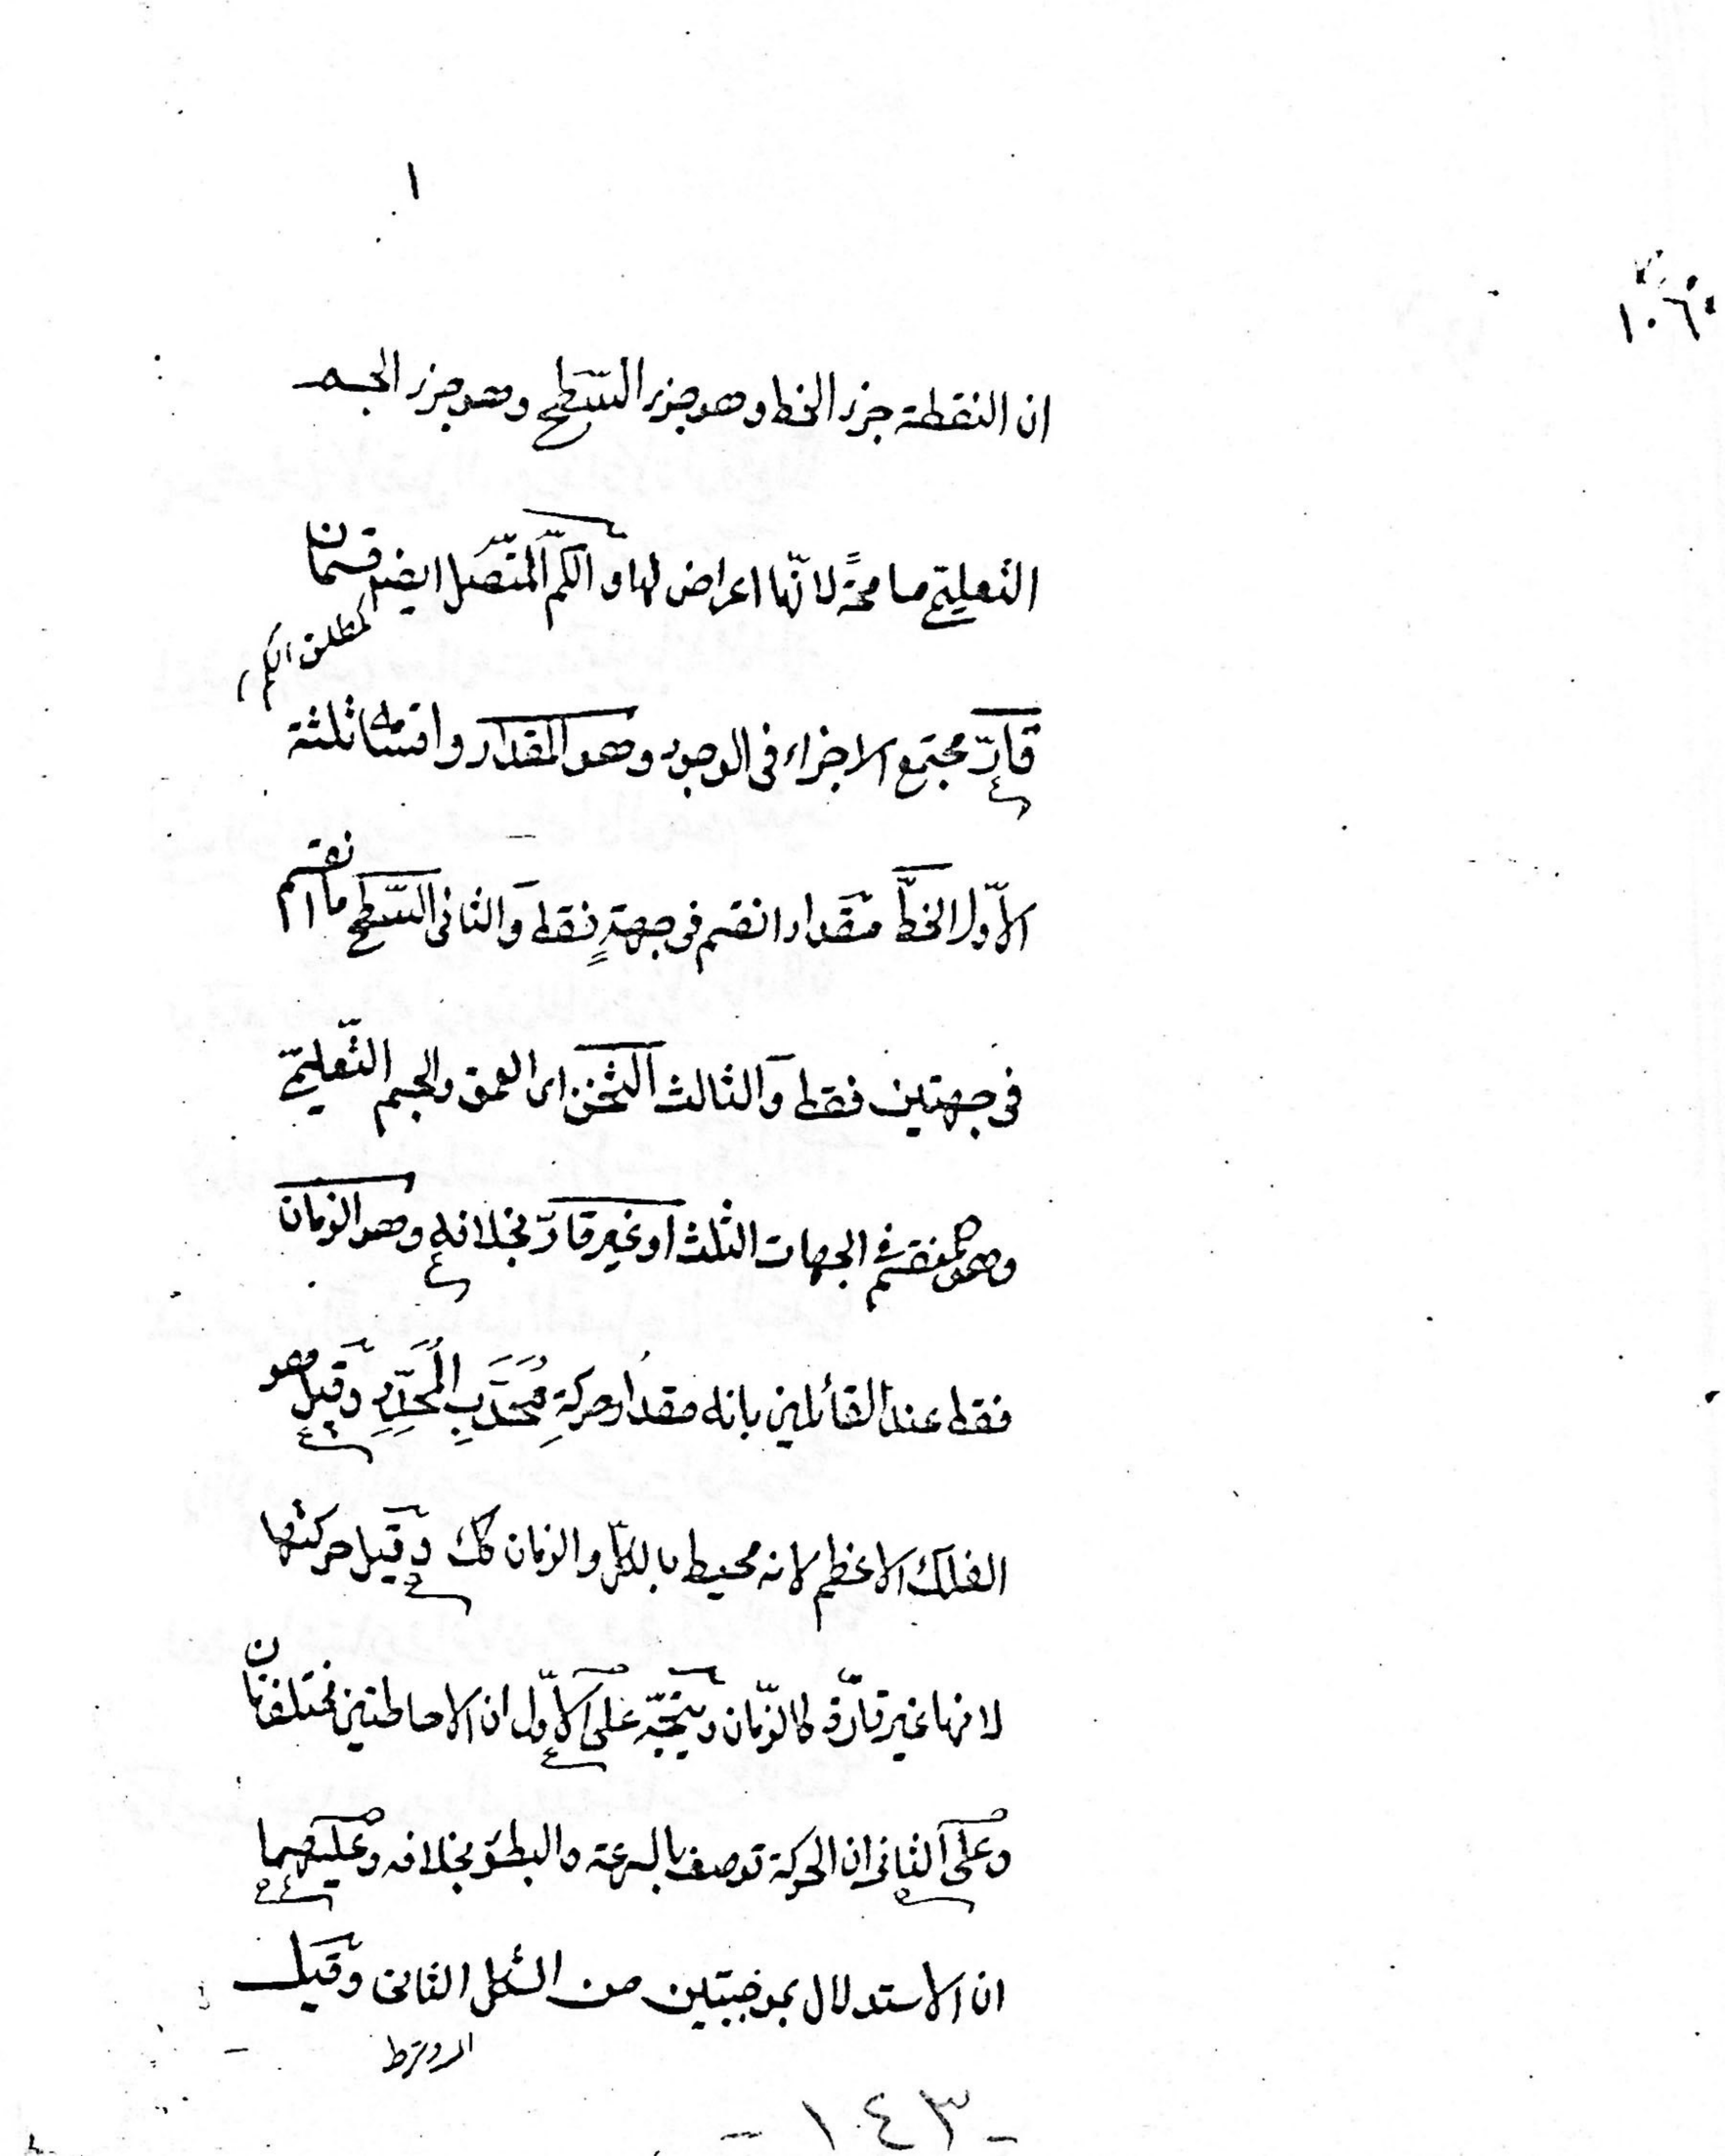 ١
١٠٦
ان النقطة جزء الخط وهو جزء السّطح وهو جزء الجسم
التعليمى مسامحةً لانّها اعراض لها وَالكمّ المتّصل ايضا قسمان
كمطلق الكم
قارّ مجتمع الاجزاء فى الوجود وهو المقدار واقسامه ثلثة
الاوّل الخطّ مقدار انقسم فى جهةٍ فقط وَالثانى السّطح ما انقسم
فى جهتين فقط وَالثالث الثخن اى العمق والجسم التّعليمىّ
وهو ما ينقسم فى الجهات الثلث او غير قارّ بخلافه وهو الزمان
فقط عند القائلين بانه مقدار حركةِ مُحَدَّبِ المُحَدِّدِ وَقيل هو
الفلك الاعظم لانه محيط بالكلّ والزمان كك وَقيل حركتها
لانها غير قارّة كالزّمان ويتّجه على الاوّل ان الاحاطتين مختلفتان
وعلى الثانى ان الحركة توصف بالسرعة والبطؤ بخلافه وعليهما
ان الاستدلال بموجبتين من الشكل الثانى وَقيل
- ١٤٣ -